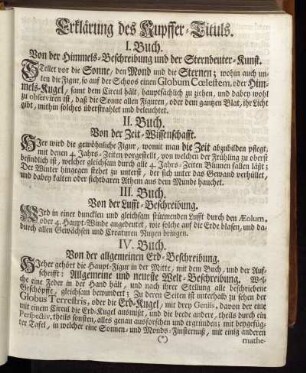 Erklärung des Kupffer-Tituls.
I. Buch.
Von der Himmels-Beschreibung und der Sterndeuter-Kunst.
Stellet vor die Sonne, den Mond und die Sternen; wohin auch un-
ten die Figur, so auf der Schoos einen Globum Cœlestem, oder Him-
mels-Kugel, samt dem Circul hält, hauptsächlich zu ziehen, und dabey wohl
zu observiren ist, daß die Sonne allen Figuren, oder dem gantzen Blat, ihr Licht
gibt, mithin solches überstrahlet und beleuchtet.
II. Buch.
Von der Zeit-Wissenschafft.
Hier wird die gewöhnliche Figur, womit man die Zeit abzubilden pfleget,
mit denen 4. Jahrs-Zeiten vorgestellt, von welchen der Frühling zu oberst
befindlich ist, welcher gleichsam durch alle 4. Jahrs-Zeiten Blumen fallen läst;
Der Winter hingegen stehet zu unterst, der sich unter das Gewand verhüllet,
und dabey kalten oder sichtbaren Athem aus dem Munde hauchet.
III. Buch.
Von der Lufft-Beschreibung.
Wird in einer duncklen und gleichsam stürmenden Lufft durch den Æolum,
oder 4. Haupt-Winde angedeutet, wie solche auf die Erde blasen, und da-
durch allen Gewächsen und Creaturen Nutzen bringen.
IV. Buch.
Von der allgemeinen Erd-Beschreibung.
Hieher gehört die Haupt-Figur in der Mitte, mit dem Buch, und der Auf-
schrifft: Allgemeine und neueste Welt-Beschreibung. Wel-
che eine Feder in der Hand hält, und nach ihrer Stellung alle beschriebene
Geschöpffe, gleichsam bewundert; Zu deren Seiten ist unterhalb zu sehen der
Globus Terrestris, oder die Erd-Kugel, mit drey Geniis, davon der eine
mit einem Circul die Erd-Kugel ausmißt, und die beede andere, theils durch ein
Perspectiv, theils sonsten, alles genau ausforschen und ergründen; mit beygefüg-
ter Tafel, in welcher eine Sonnen- und Monds-Finsternuß, mit einig anderen
(*) mathe-